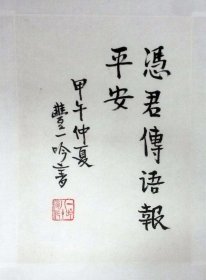 憑君傳语報
平安
甲午仲夏
豐一吟書